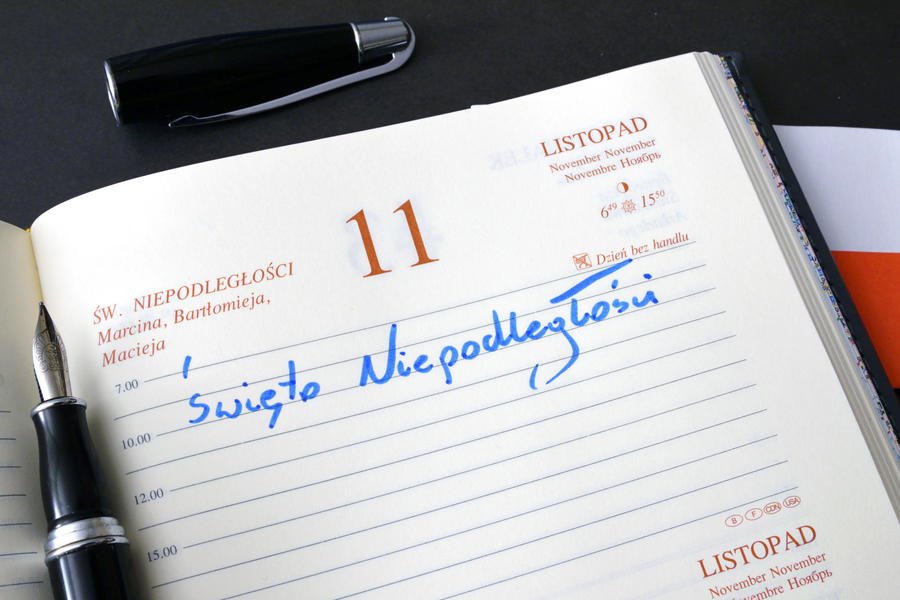 LISTOPAD
November November
Novembre Ноябрь
6⁴⁹ 15⁵⁰
11
Dzień bez handlu
ŚW. NIEPODLEGŁOŚCI
Marcina, Bartłomieja,
Macieja
Święto Niepodległości
7.00
10.00
12.00
15.00
B F CDN USA
LISTOPAD
November November
Novembre Ноябрь